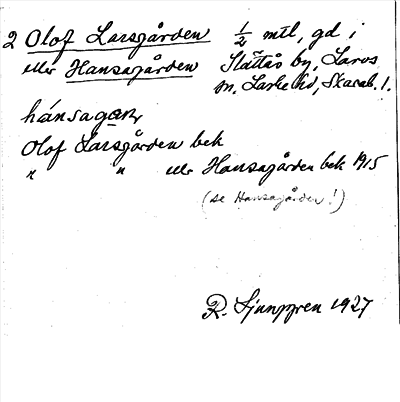 2 Olof Larsgården ½ mtl, gd i
eller Hansagården Slättås by, Larvs
sn. Larke hd, Skarab. l.
hánsagαɳ
Olof Larsgården bek
" " eller Hansagården bek 1915
(se Hansagården!)
R. Ljunggren 1927